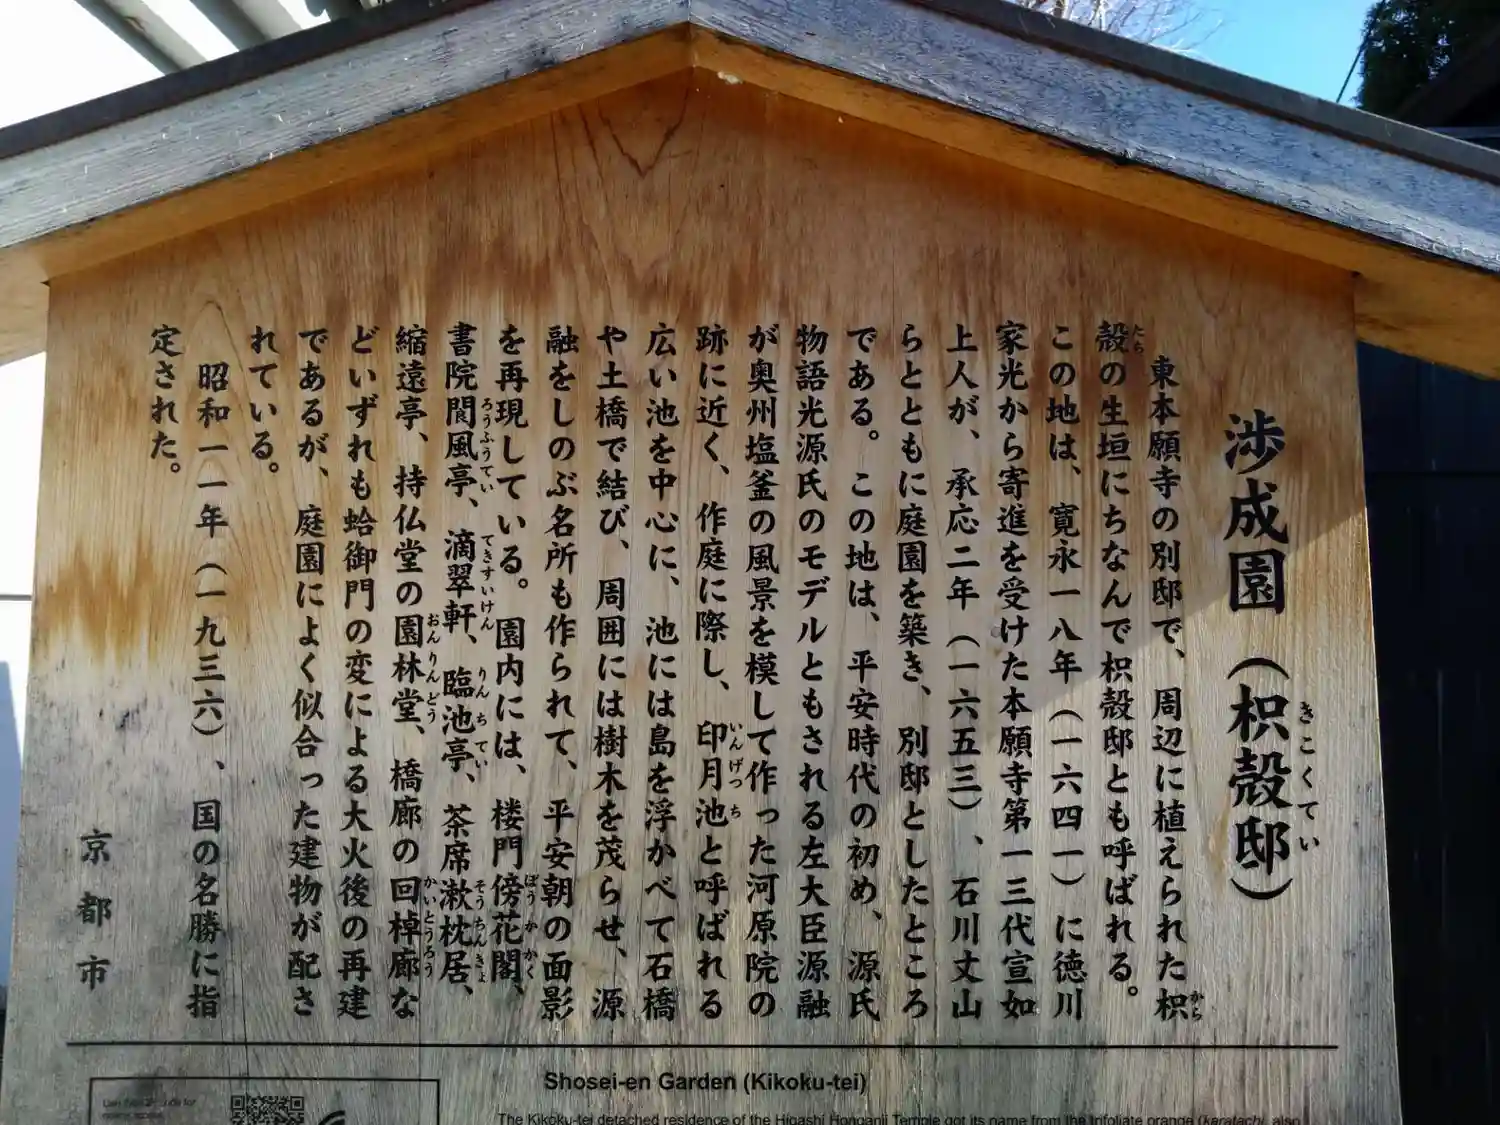 渉成園（枳殻邸）
きこくてい
東本願寺の別邸で、周辺に植えられた枳
から
殻の生垣にちなんで枳殻邸とも呼ばれる。
たち
この地は、寛永一八年（一六四一）に徳川
家光から寄進を受けた本願寺第一三代宣如
上人が、承応二年（一六五三）、石川丈山
らとともに庭園を築き、別邸としたところ
である。この地は、平安時代の初め、源氏
物語光源氏のモデルともされる左大臣源融
が奥州塩釜の風景を模して作った河原院の
跡に近く、作庭に際し、印月池と呼ばれる
いんげつち
広い池を中心に、池には島を浮かべて石橋
や土橋で結び、周囲には樹木を茂らせ、源
融をしのぶ名所も作られて、平安朝の面影
を再現している。園内には、楼門傍花閣、
ぼうかかく
書院閬風亭、滴翠軒、臨池亭、茶席漱枕居、
ろうふうてい てきすいけん りんちてい そうちんきょ
縮遠亭、持仏堂の園林堂、橋廊の回棹廊な
おんりんどう かいとうろう
どいずれも蛤御門の変による大火後の再建
であるが、庭園によく似合った建物が配さ
れている。
昭和一一年（一九三六）、国の名勝に指
定された。
京都市
Shosei-en Garden (Kikoku-tei)
The Kikoku-tei detached residence of the Higashi Honganji Temple got its name from the trifoliate orange (karatachi, also